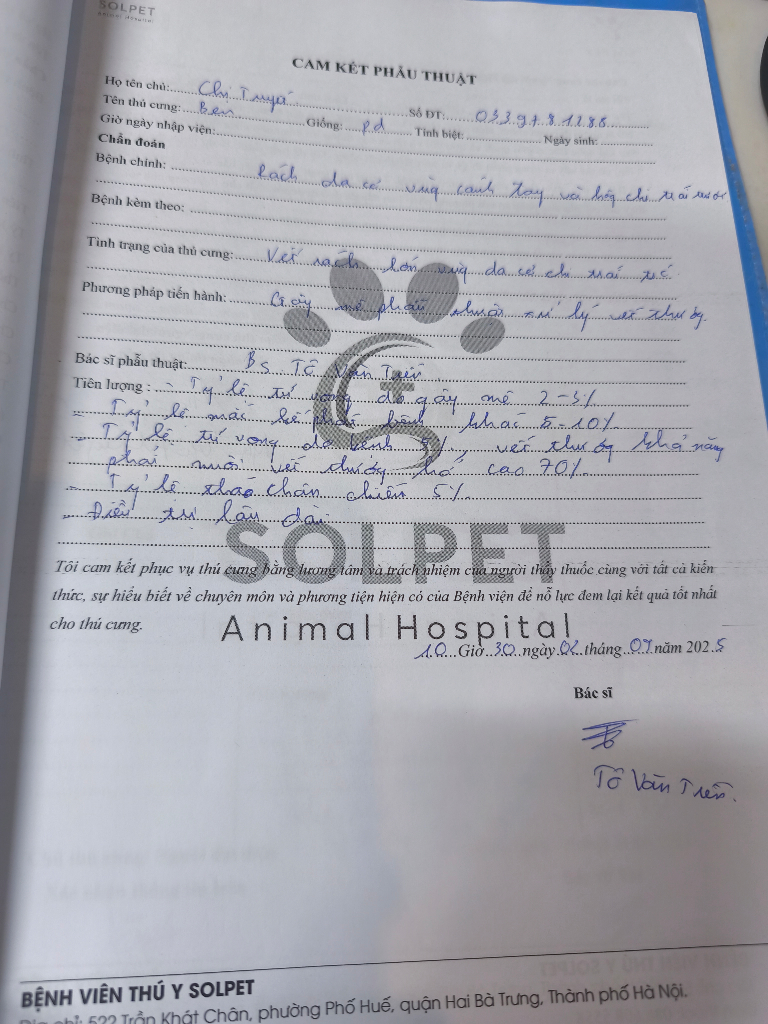 SOLPET
Animal Hospital
CAM KẾT PHẪU THUẬT
Họ tên chủ: Chị
Tên thú cưng: Ben Giống: pd Số ĐT: 0339781288
Giờ ngày nhập viện: Tính biệt: Ngày sinh:
Chẩn đoán
Bệnh chính: Rách da cổ vùng cánh tay và chi trái trước
Bệnh kèm theo:
Tình trạng của thú cưng: Vết rách lớn vùng da cổ chi trái
Phương pháp tiến hành: Gây mê phẫu thuật xử lý vết thương
Bác sĩ phẫu thuật: BS Tô Văn
Tiên lượng : - Tỷ lệ tử vong do gây mê 2-3%
- Tỷ lệ mắc bệnh khác 5-10%
- Tỷ lệ tử vong do bệnh 5%, vết thương khả năng
phải vết cao 70%
- Tỷ lệ tháo chân chiếm 5%
- Điều trị lâu dài
SOLPET
Tôi cam kết phục vụ thú cưng bằng lương tâm và trách nhiệm của người thầy thuốc cùng với tất cả kiến
thức, sự hiểu biết về chuyên môn và phương tiện hiện có của Bệnh viện để nỗ lực đem lại kết quả tốt nhất
cho thú cưng.
Animal Hospital
10 Giờ 30 ngày 02 tháng 07 năm 2025
Bác sĩ
Tô Văn
BỆNH VIÊN THÚ Y SOLPET
Địa chỉ: 522 Trần Khát Chân, phường Phố Huế, quận Hai Bà Trưng, Thành phố Hà Nội.